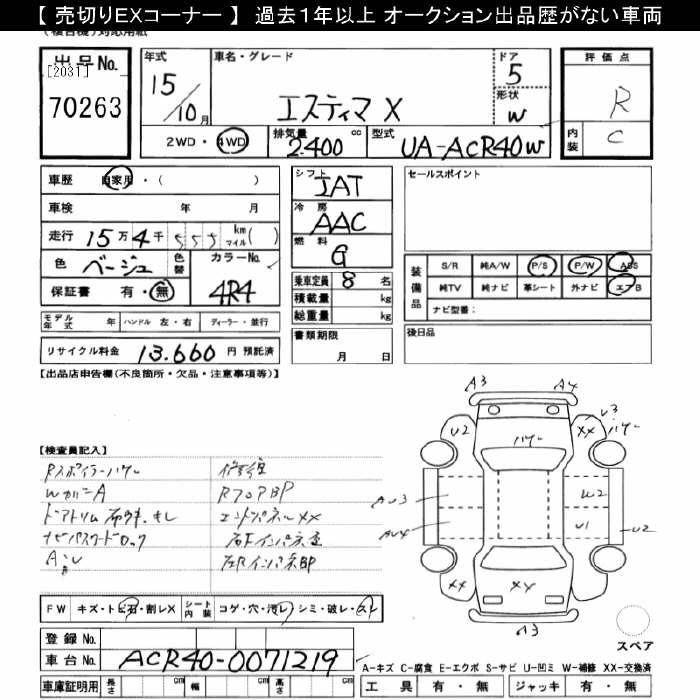 【 売切りEXコーナー 】 過去１年以上 オークション出品歴がない車両
(複合機)対応用紙
出品No. [2031] 70263
年式 15/10月
車名・グレード エスティマ X
ドア 5
形状 W
評価点 R
内装 C
2WD・4WD 排気量 2.400 cc 型式 UA-ACR40W
車歴 自家用・( )
車検 年 月
走行 15万 4千 555 km マイル( )
色 ベージュ 色替 カラーNo. 4R4
保証書 有・無
シフト IAT
冷房 AAC
燃料 G
乗車定員 8 名
積載量 kg
総重量 kg
書類期限 月 日
セールスポイント
装備品 S/R 純A/W P/S P/W ABS
純TV 純ナビ 革シート 外ナビ エアB
ナビ型番:
後日品
モデル年式 年 ハンドル 左・右 ディーラー・並行
リサイクル料金 13.660 円 預託済
【出品店申告欄(不良箇所・欠品・注意事項等)】
【検査員記入】
Rスポイラーハゲ 修復
WカバーA R70アBP
エンドパネルXX
ナビパスワードロック
A3 A4
U2 ハゲ XX U3 ハゲ
AU3 U2
AU4 U1 U2
XX XY
A3
スペア
FW キズ・トビ石・割レX シート内装 コゲ・穴・汚レ・シミ・破レ・スレ
登録No.
車台No. ACR40-0071219
A-キズ C-腐食 E-エクボ S-サビ U-凹ミ W-補修 XX-交換済
車庫証明用 長さ cm 幅 cm 高さ cm 工具 有・無 ジャッキ 有・無